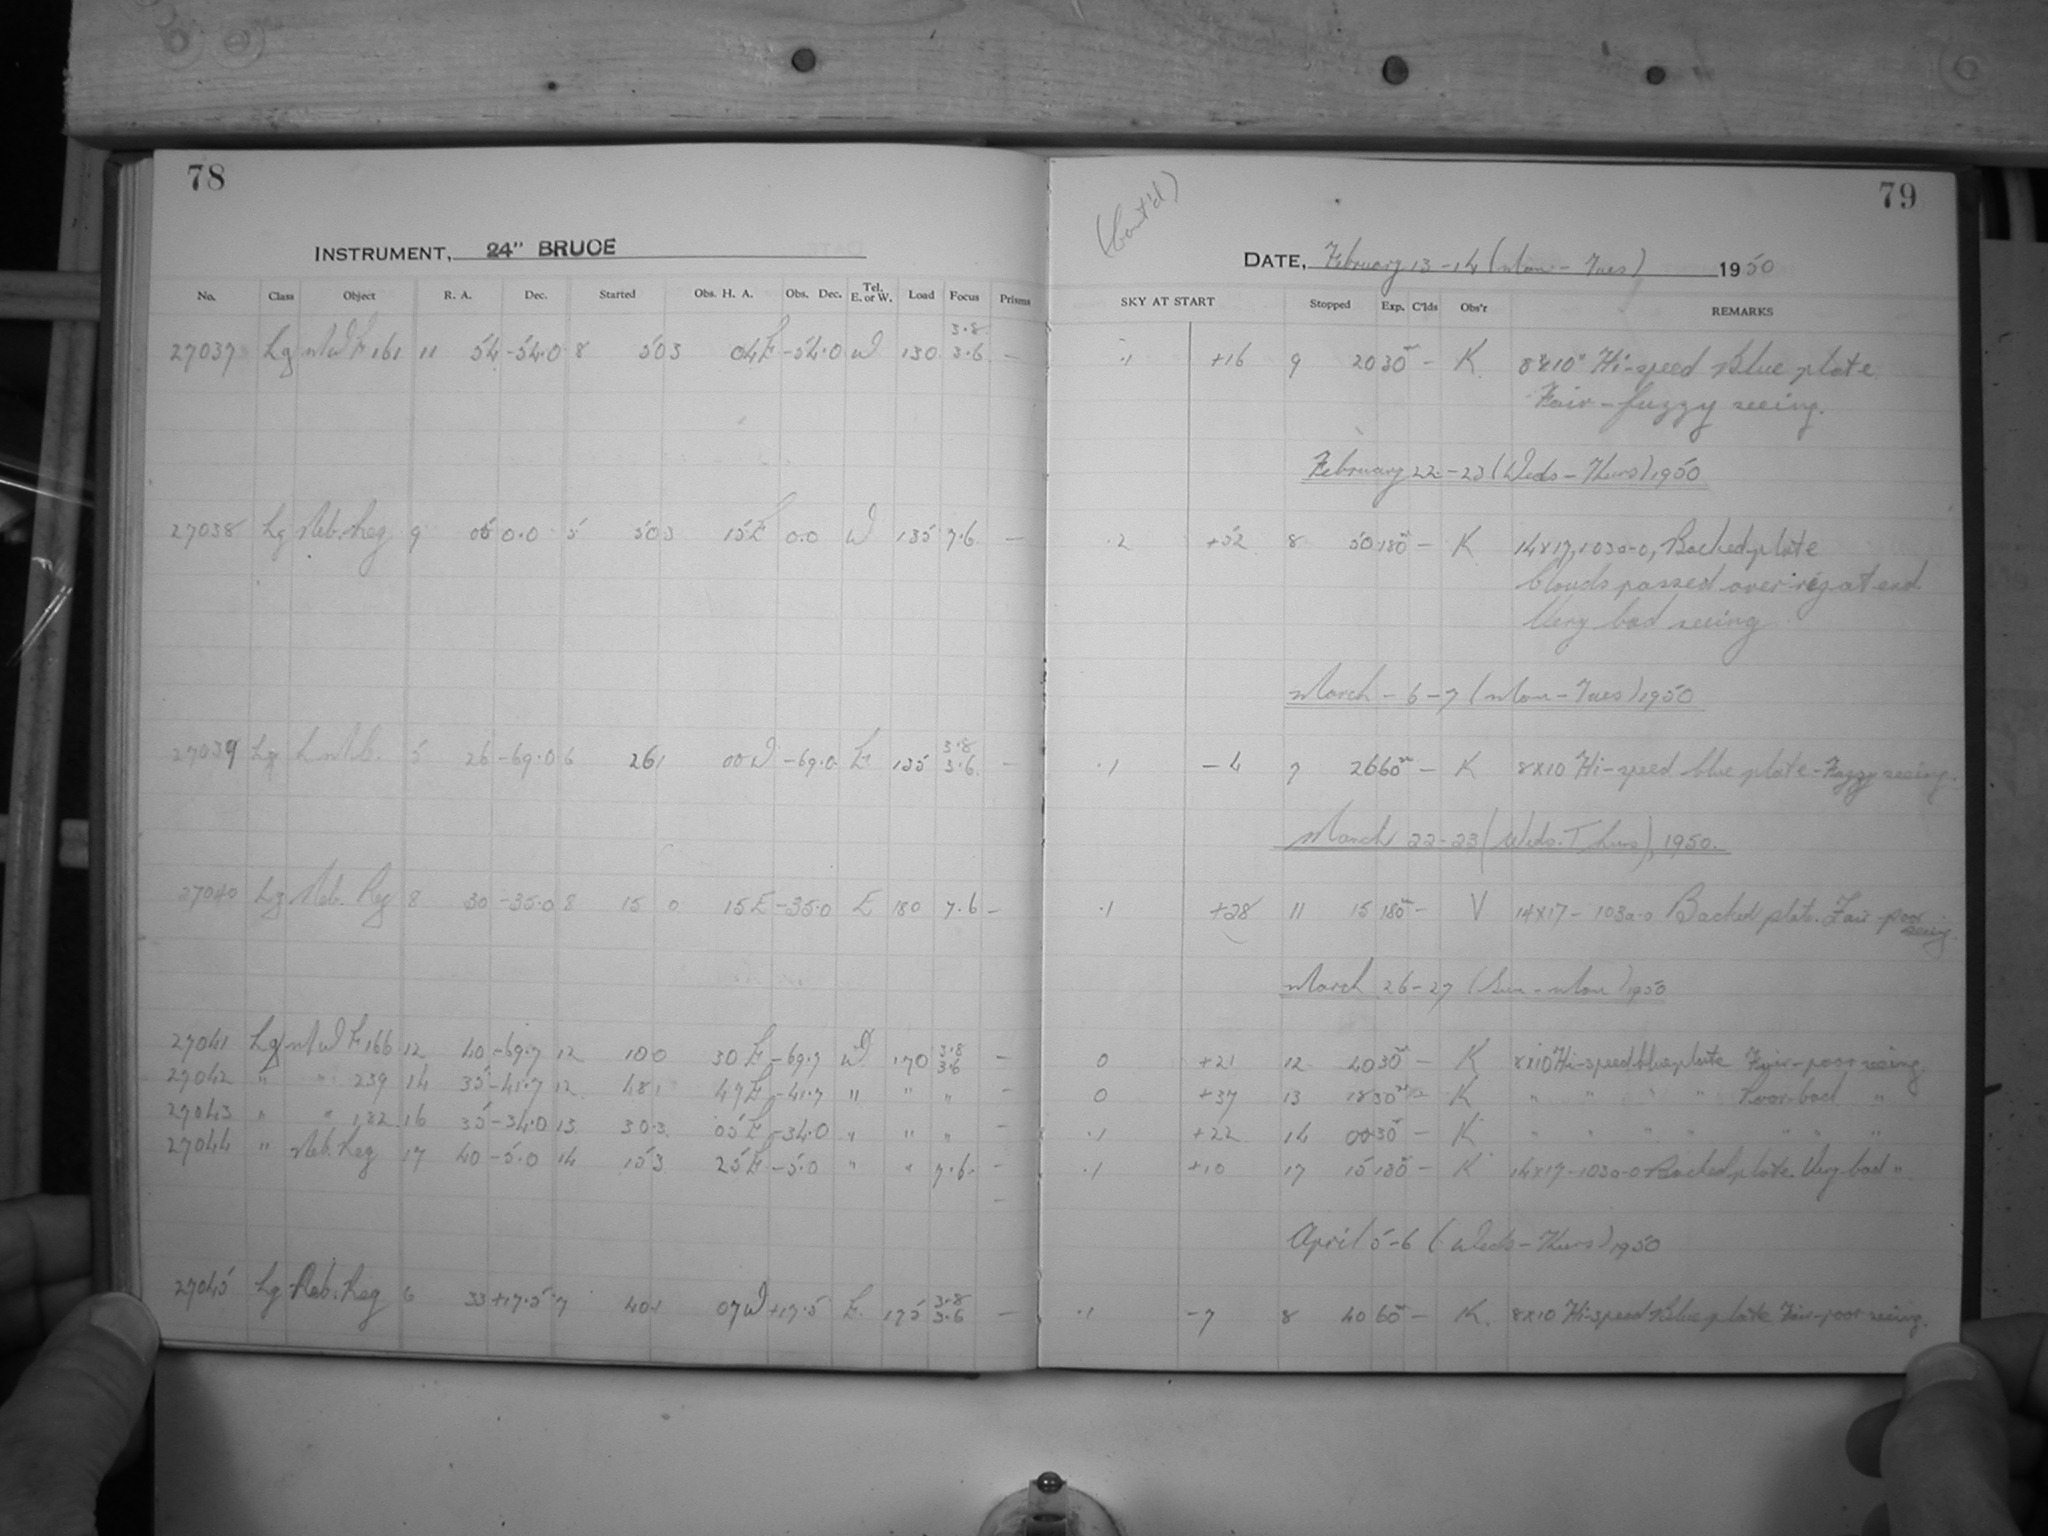 78
INSTRUMENT, 24" BRUCE
No. Class Object R. A. Dec. Started Obs. H. A. Obs. Dec. Tel. E. or W. Load Focus Prisms
27037 Lg MWF 161 11 54 -54.0 8 50 3 04E -54.0 W 130 3.8 3.6 —
27038 Lg Neb. Reg 9 05 0.0 5 50 3 15E 0.0 W 135 7.6 —
27039 Lg 5 26 -69.0 6 26 1 00W -69.0 E 135 3.8 3.6 —
27040 Lg Neb. Reg 8 30 -35.0 8 15 0 15E -35.0 E 180 7.6 —
27041 Lg MWF 166 12 40 -69.7 12 10 0 30E -69.7 W 170 3.8 3.6 —
27042 " " 239 14 35 -41.7 12 48 1 47E -41.7 " " " —
27043 " " 182 16 35 -34.0 13 30 3 05E -34.0 " " " —
27044 " Neb. Reg 17 40 -5.0 14 15 3 25E -5.0 " " 7.6 —
27045 Lg Neb. Reg 6 33 +17.5 7 40 1 07W +17.5 E. 175 3.8 3.6 —
(Cont'd)
79
DATE, February 13-14 (Mon - Tues) 1950
SKY AT START Stopped Exp. C'lds Obs'r REMARKS
.1 +16 9 20 30m — K 8x10" Hi-speed Blue plate
Fair - fuzzy seeing.
February 22-23 (Weds - Thurs) 1950
.2 +52 8 50 180m — K 14x17, 103a-O, Backed plate
Clouds passed over reg at end
Very bad seeing
March - 6-7 (Mon - Tues) 1950
.1 -4 7 26 60m — K 8x10 Hi-speed blue plate - Fuzzy seeing.
March 22-23 (Weds. Thurs), 1950.
.1 +28 11 15 180m — V 14x17 - 103a-O Backed plate. Fair - poor seeing.
March 26-27 (Sun - Mon) 1950
0 +21 12 40 30m — K 8x10 Hi-speed blue plate Fair - poor seeing.
0 +37 13 18 30m K " " " " Poor-bad "
.1 +22 14 00 30m — K " " " " " " "
.1 +10 17 15 180m — K 14x17 - 103a-O Backed plate. Very bad "
April 5-6 (Weds - Thurs) 1950
.1 -7 8 40 60m — K. 8x10 Hi-speed Blue plate Fair-poor seeing.